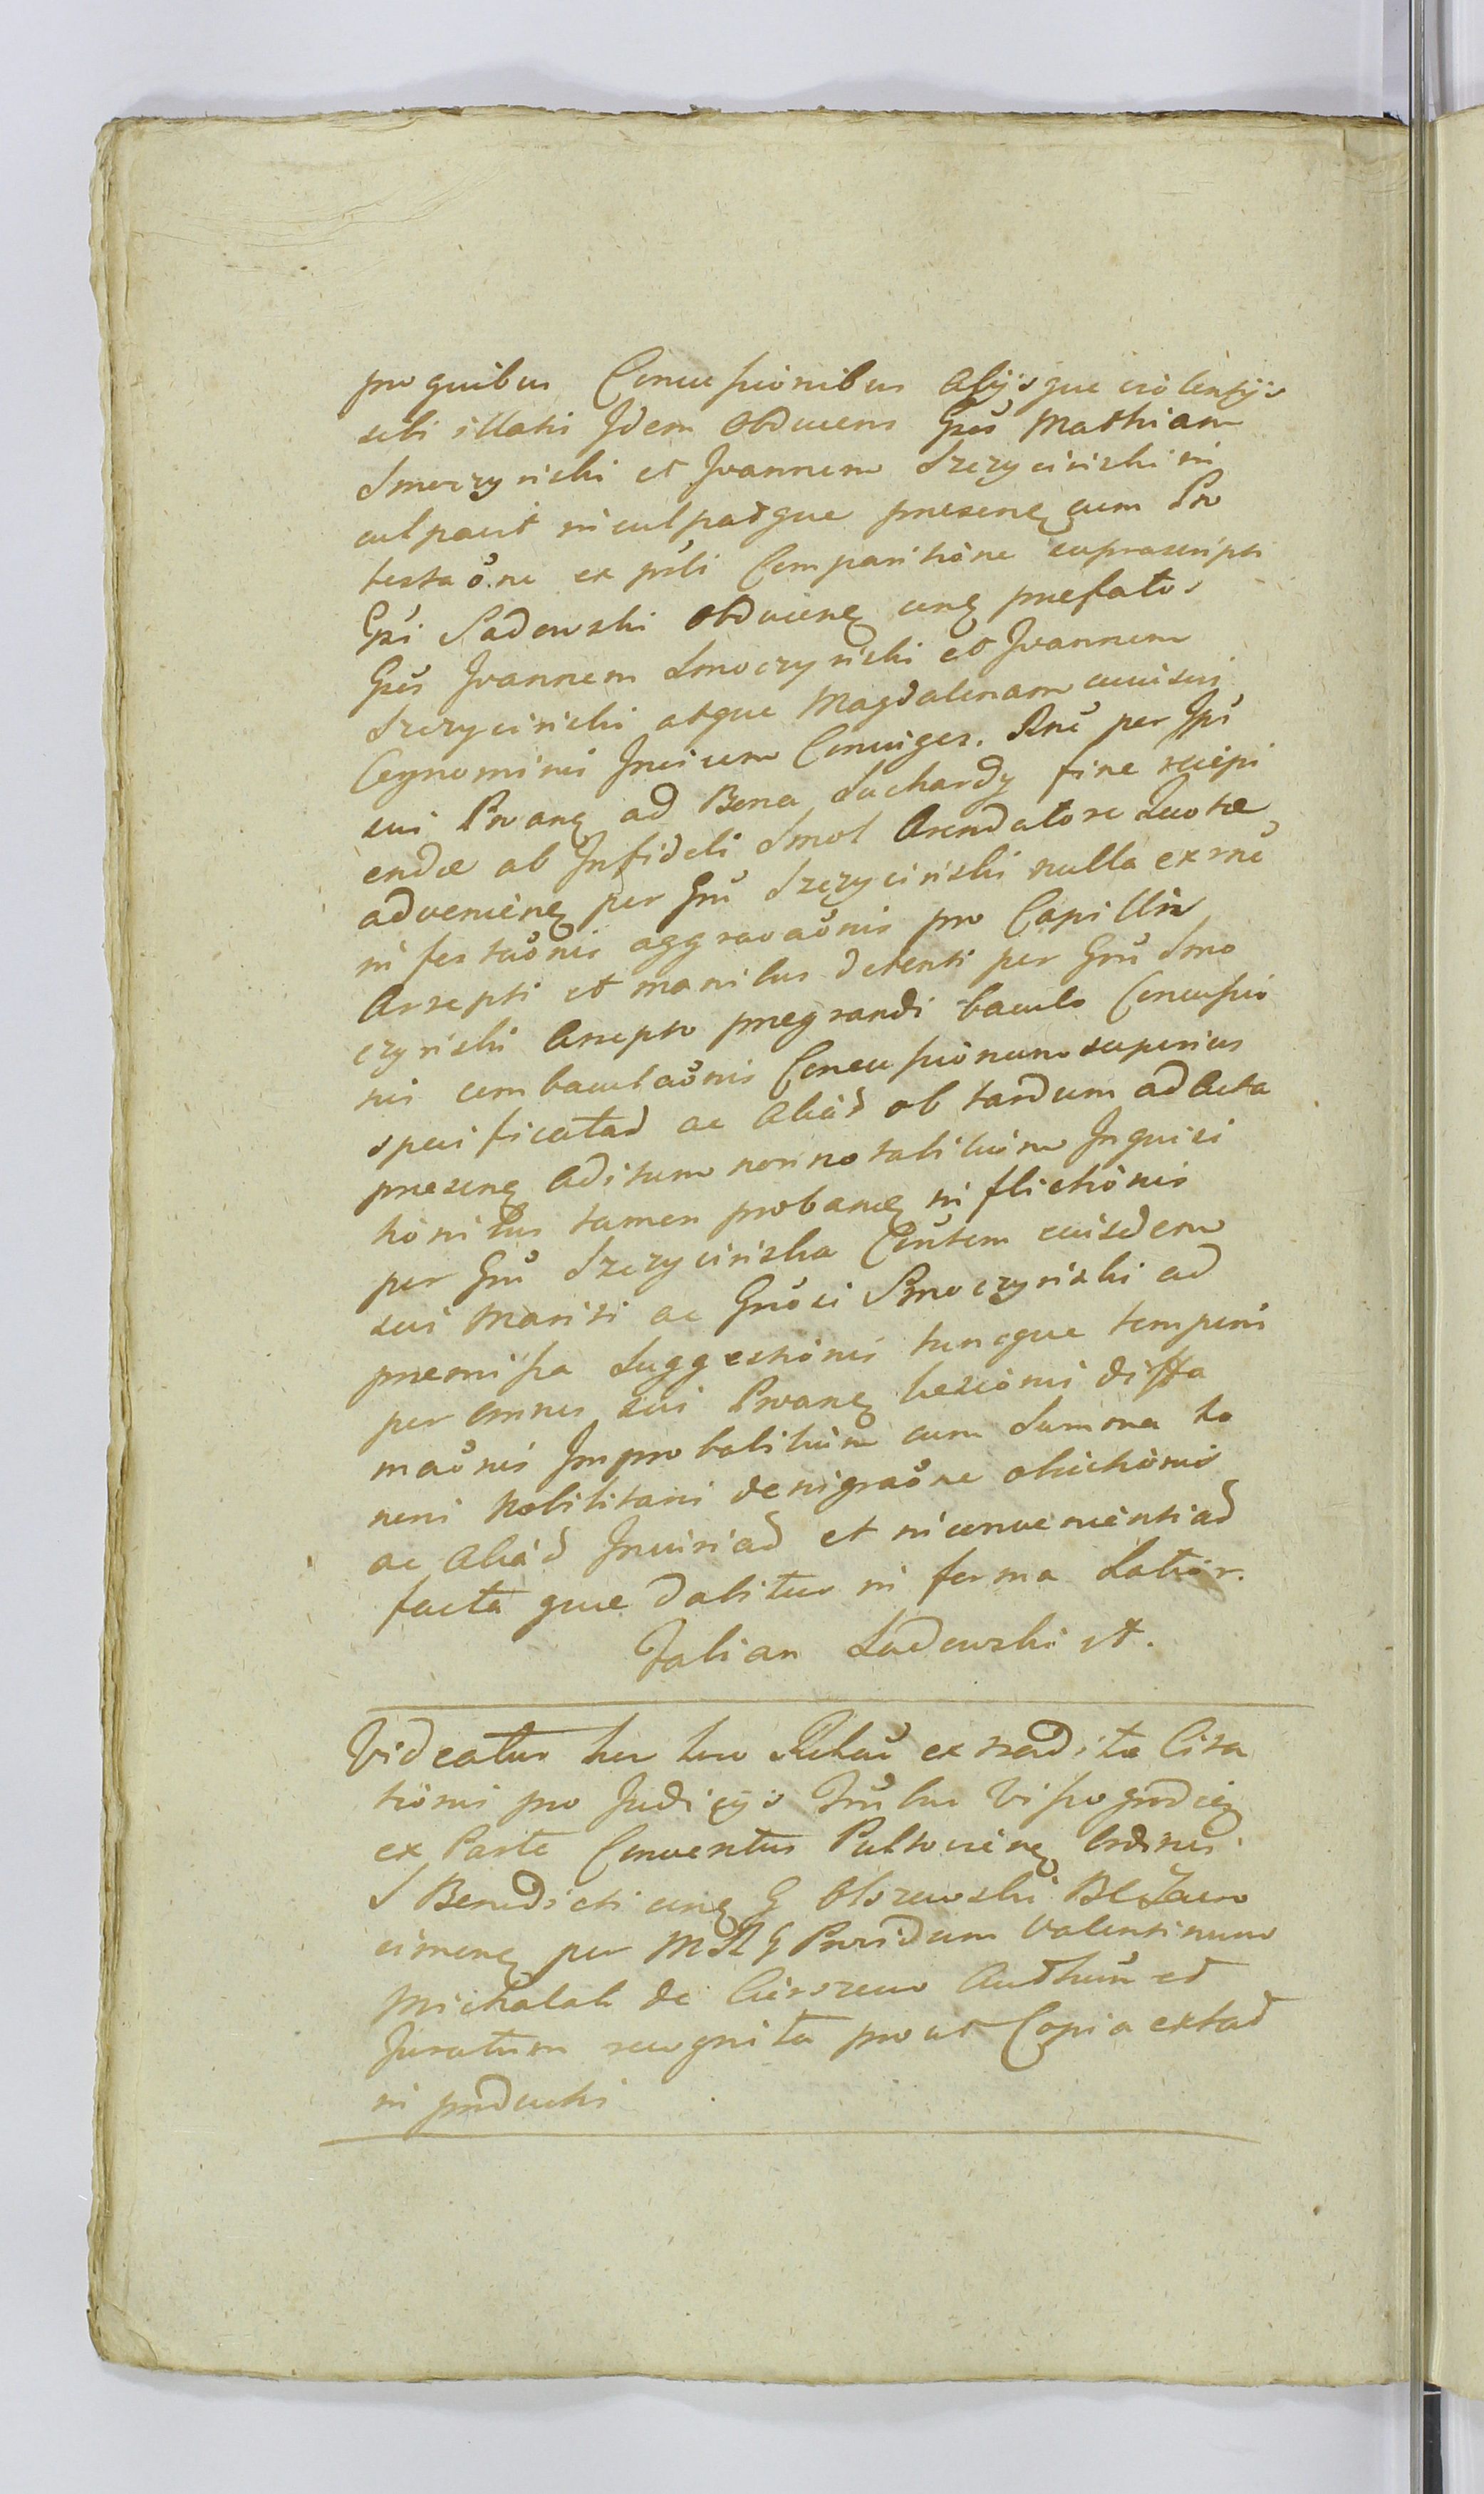 pro quibus Concussionibus Alijsque violentijs
sibi illatis Idem Obducens Gsos Mathiam
Smoczynski et Joannem Szczycinski in
culpavit inculpatque presenq cum Pro
testaone ex psli Comparitione suprascripti
Gsi Sadowski Obducenq cnq prefatos
Gsos Joannem Smoczynski et Joannem
Szczycinski atque Magdalenam eiusvis
Cognominis Invicem Conuiges. Rne per Ipsi
sui Proanq ad Bona Suchardy fine recipi
endae ab Infideli Smol Arendatore Quotae
advenienq per Gnu Szczycinski nulla ex rne
infestaonis aggravaonis pro Capillis
Arrepti et manibus detenti per Gnu Smo
czynski Arrepto pregrandi baculo Concussio
nis cum baculaonis Concussionum superius
specificatad ac Aliad ob tardum ad Acta
presenq Aditum non notabilium Inquisi
tionibus tamen probanq inflictionis
per Gnu Szczycinska Contem eiusdem
sui Mariti ac Gnosi Smoczynski ad
premissa Suggestionis tuncque temporis
per omnes sui Proanq lesionis diffa
maonis Improbabilium cum Summa ho
noris Nobilitaris denigraone obiectionis
ac Aliad Iniuriad et inconvenientiad
facta que dabitur in forma Latior.
Fabian Sadowski st.
Videatur hu loco Relao ex tradita Cita
tionis pro Judicijs Trnlbus Vissogrodieq
ex Parte Conventus Pultovienq Ordinis
S Benedicti cnq G Olszewski Bl Zaw
cimenq per MRG Providum Valentinum
Michalak de Cierszewo Authum et
Juratum recognita prout Copia extad
in productis